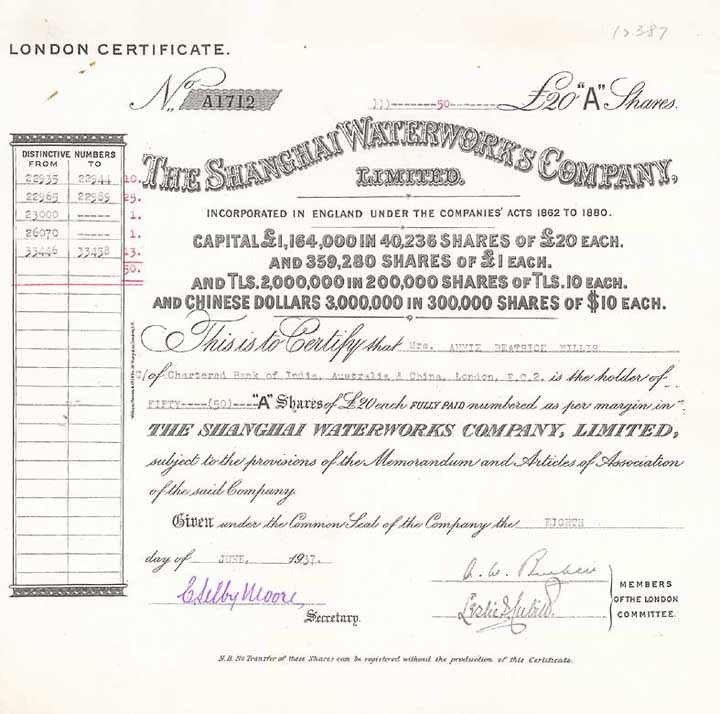 12387
LONDON CERTIFICATE.
No. A1712 )))-------50------- £20 "A" Shares.
THE SHANGHAI WATERWORKS COMPANY,
LIMITED.
INCORPORATED IN ENGLAND UNDER THE COMPANIES' ACTS 1862 TO 1880.
CAPITAL £1,164,000 IN 40,236 SHARES OF £20 EACH.
AND 359,280 SHARES OF £1 EACH.
AND TLS. 2,000,000 IN 200,000 SHARES OF TLS. 10 EACH.
AND CHINESE DOLLARS 3,000,000 IN 300,000 SHARES OF $10 EACH.
DISTINCTIVE NUMBERS
FROM TO
22935 22944 10.
22965 22989 25.
23000 ----- 1.
26070 ----- 1.
33446 33458 13.
50.
This is to Certify that Mrs. ANNIE BEATRICE WILLIS
C/of Chartered Bank of India, Australia & China, London, E.C.2. is the holder of
FIFTY----(50)---"A" Shares of £20 each FULLY PAID numbered as per margin in
THE SHANGHAI WATERWORKS COMPANY, LIMITED,
subject to the provisions of the Memorandum and Articles of Association
of the said Company.
Given under the Common Seal of the Company the EIGHTH
day of JUNE, 1937.
C Selby Moore,
Secretary.
A. W.
Leslie
MEMBERS
OF THE LONDON
COMMITTEE.
N.B. No Transfer of these Shares can be registered without the production of this Certificate.